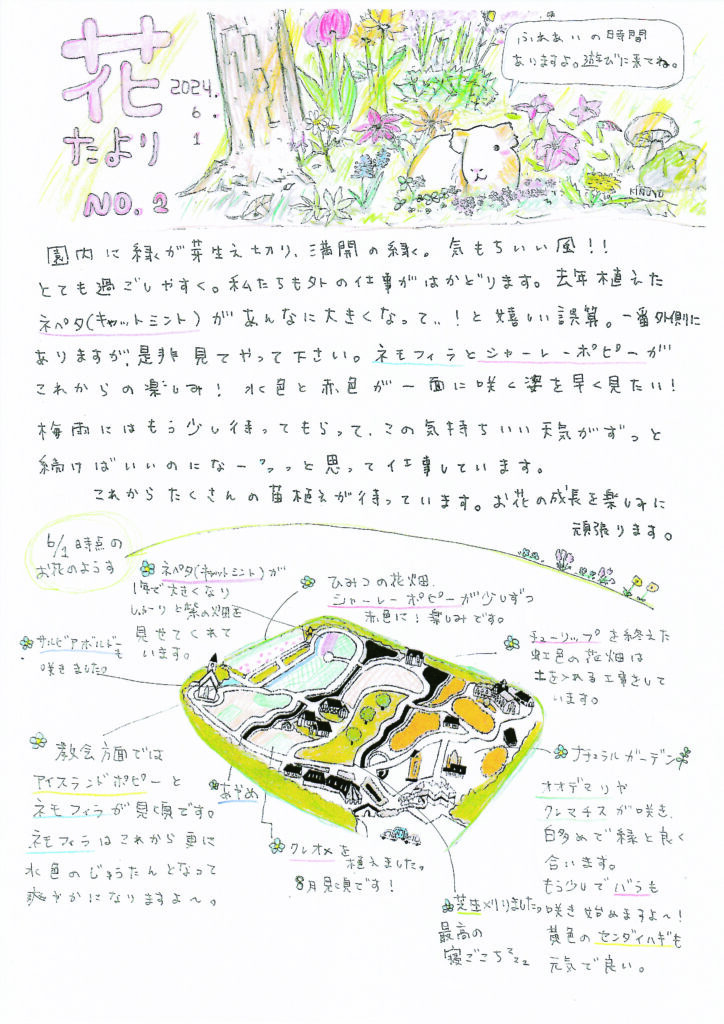 花
たより
NO.2
2024.
6.
1
ふれあいの時間
ありますよ。遊びに来てね。
KINUYO
園内に緑が芽生え切り、満開の緑。気もちいい風!!
とても過ごしやすく。私たちも外の仕事がはかどります。去年植えた
ネペタ(キャットミント)があんなに大きくなって、、!と嬉しい誤算。一番外側に
ありますが、是非見てやって下さい。ネモフィラとシャーレーポピーが
これからの楽しみ!水色と赤色が一面に咲く姿を早く見たい!
梅雨にはもう少し待ってもらって、この気持ちいい天気がずっと
続けばいいのになーっっと思って仕事しています。
これからたくさんの苗植えが待っています。お花の成長を楽しみに
頑張ります。
6/1時点の
お花のようす
ネペタ(キャットミント)が
1年で大きくなり
しっかりと紫の畑を
見せてくれて
います。
ひみつの花畑、
シャーレーポピーが少しずつ
赤色に!楽しみです。
サルビアカラドンナも
咲きました。
チューリップを終えた
虹色の花畑は
土を入れる工事をして
います。
教会方面では
アイスランドポピーと
ネモフィラが見頃です。
ネモフィラはこれから更に
水色のじゅうたんとなって
爽やかになりますよ〜。
あやめ
クレオメを
植えました。
8月見頃です!
芝生刈りました。
最高の
寝ごこちzzz
ナチュラルガーデン
オオデマリや
クレマチスが咲き、
白多めで緑と良く
合います。
もう少しでバラも
咲き始めますよ〜!
黄色のセンダイハギも
元気で良い。